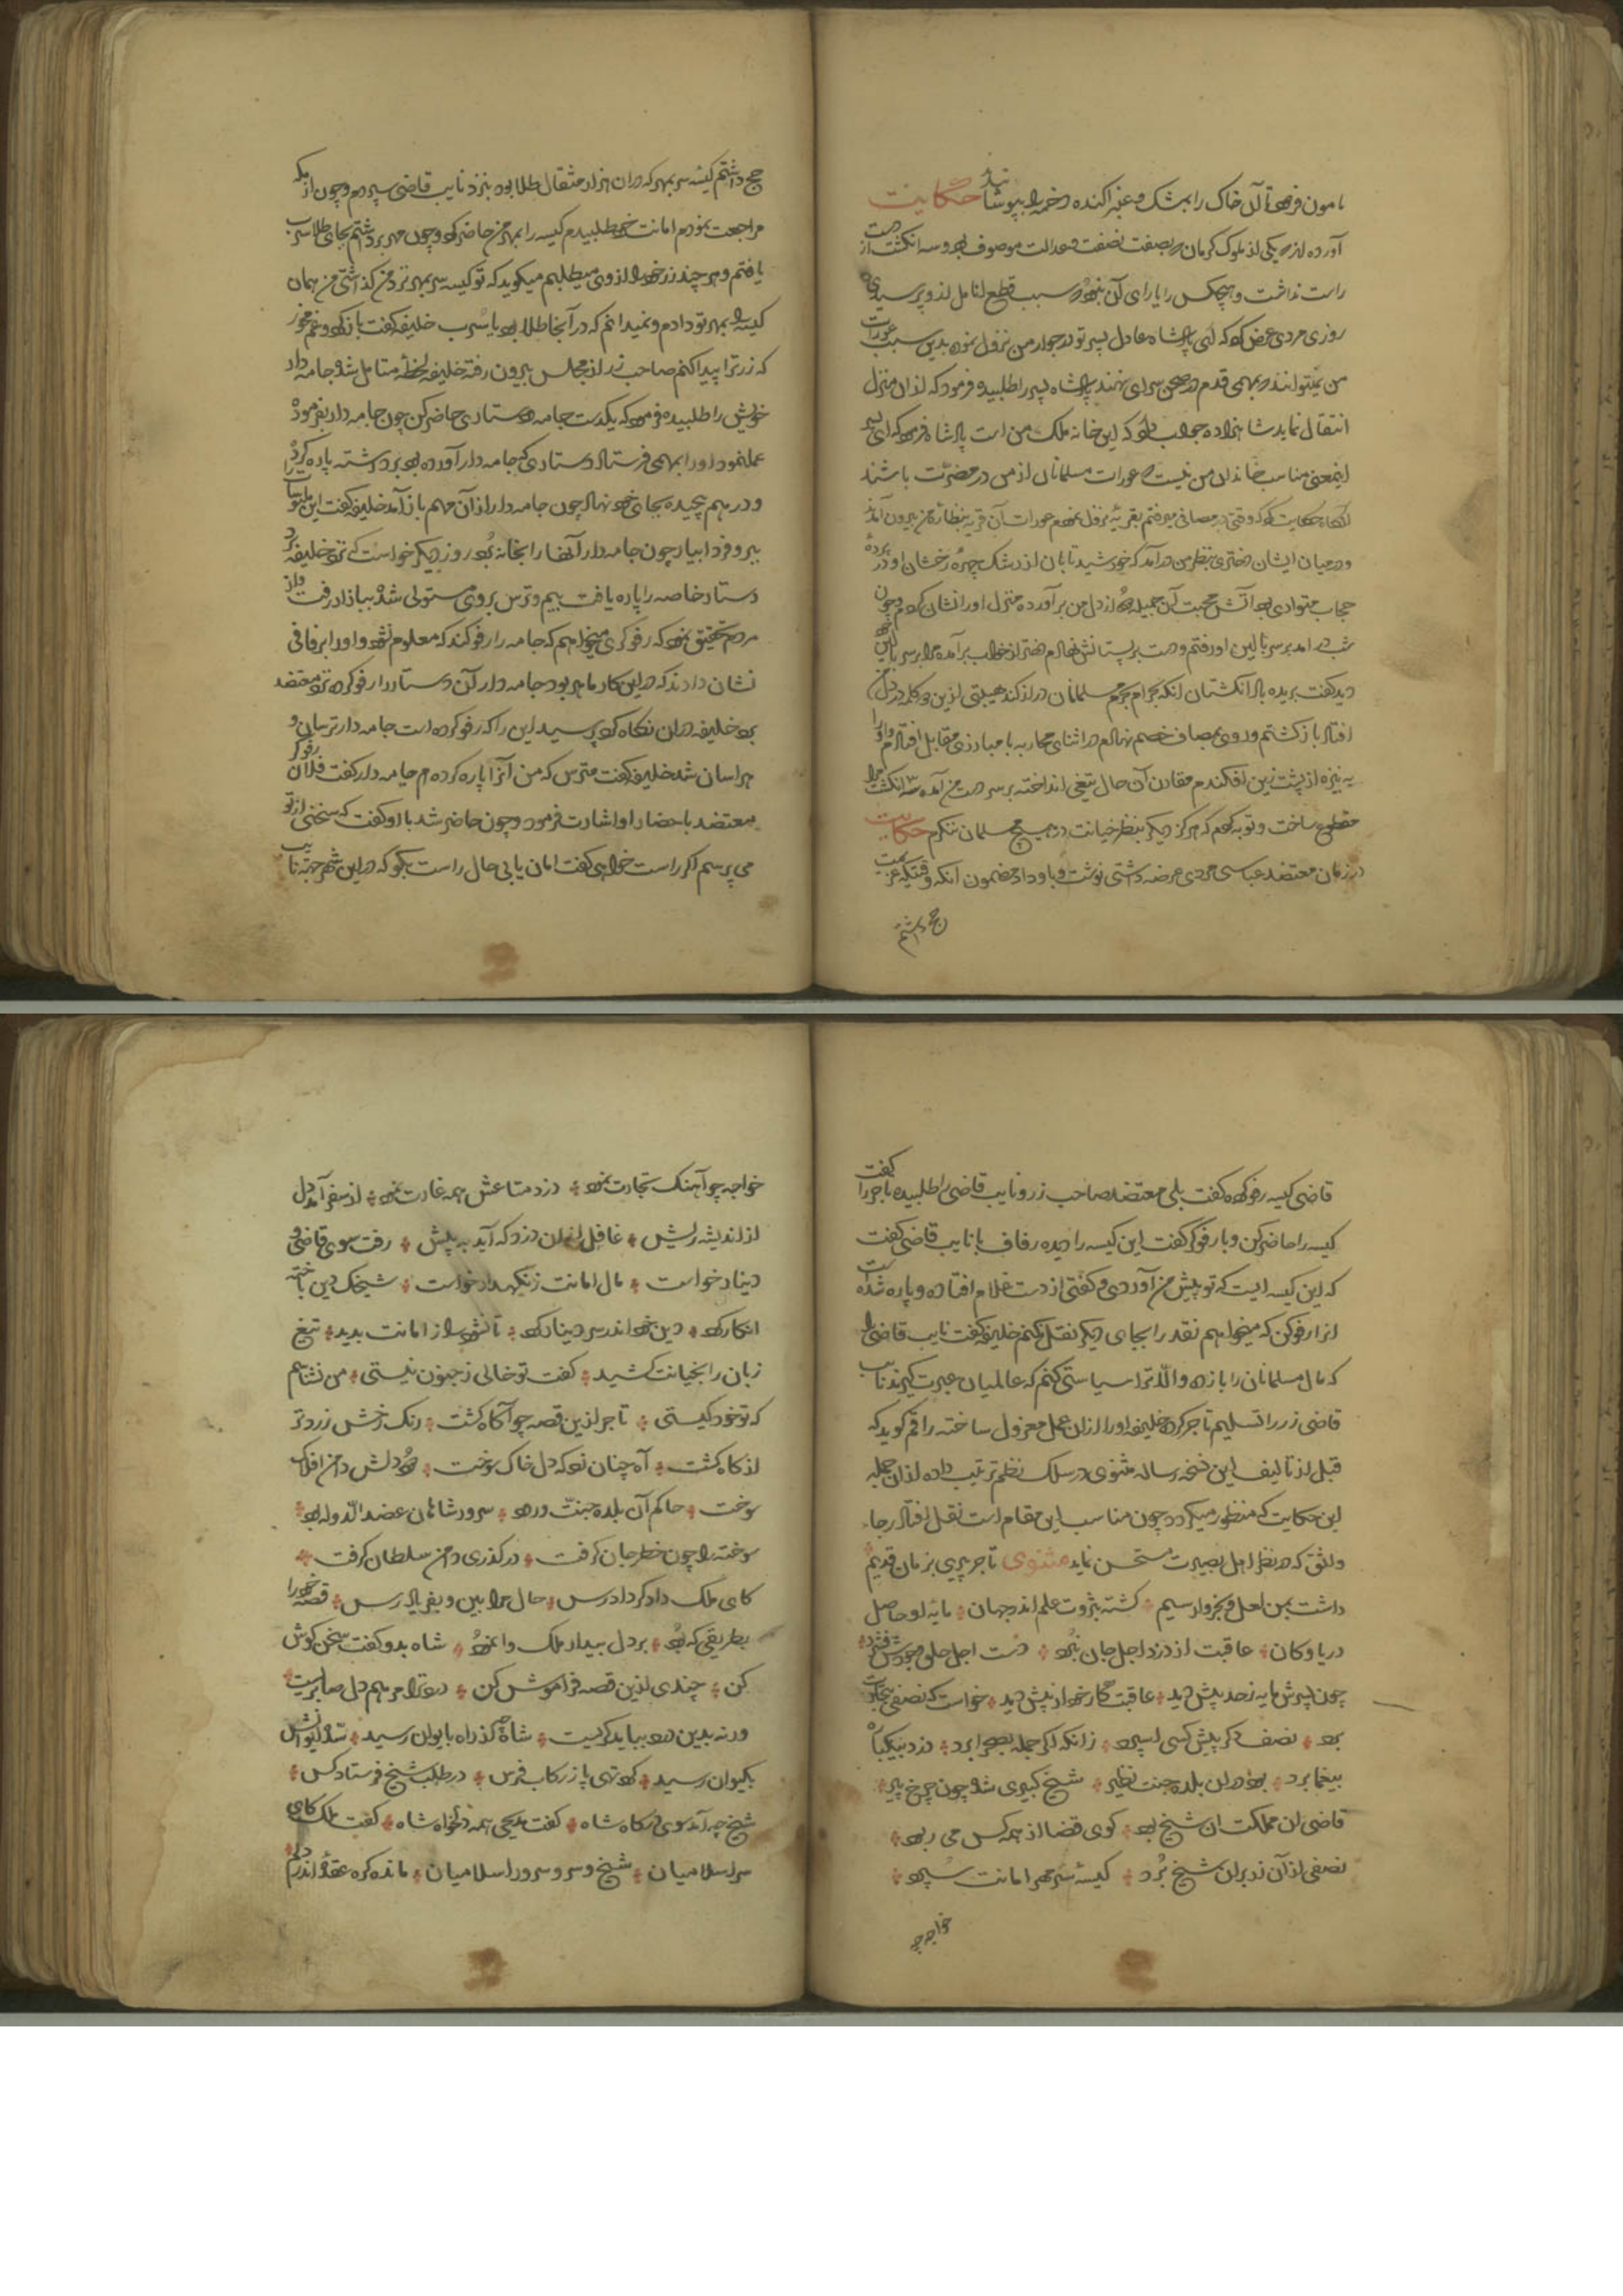 مامون فرمود تا آن خاک را بمشک و عنبر اکنده دخمه را بپوشانید حکایت
آورده اند که یکی از ملوک کرمان که بصفت نصفت و عدالت موصوف بود سه انکشت از دست
راست نداشت و هیچکس را یارای آن نبود که سبب قطع انامل از و پرسیدی
روزی مردی عرض کرد که ای پادشاه عادل پسر تو در جوار من نزول نموده بدین سبب عورات
من نمیتوانند که بهمی قدم در صحن سرای نهند پادشاه پسر را طلبید و فرمود که از ان منزل
انتقال نماید شاهزاده جواب داد که این خانه ملک من است پادشاه فرمود که ای پسر
اینمعنی مناسب خاندان من نیست که عورات مسلمانان از من در مضرت باشند
انکاه حکایت کرد که وقتی در مصافی میرفتم بقریهٔ نزول نمودم عورات آن قریه بنظاره من بیرون آمدند
و در میان ایشان دختری بنظر من درآمد که خورشید تابان از رشک چهرهٔ رخشان او در پردهٔ
حجاب متواری بود آتش محبت آن جمیله دود از دل من برآورده منزل او را نشان کردم و چون
شب درامد بر سر بالین او رفتم و دست بر پستانش نهادم دختر از خواب برآمده مرا بر سر بالین خود
دید کفت بریده باد انکشتان انکه بحرام بحرم مسلمانان دراز کند هیبتی ازین کلمه در دل من
افتاد باز کشتم و روی بمصاف خصم نهادم در اثنای محاربه با مبارزی مقابل افتادم و او را
به نیزه از پشت زین افکندم مقارن آن حال تیغی انداخته بر سر دست من آمده سه انکشت مرا
مقطوع ساخت و توبه کردم که هرکز دیکر بنظر خیانت در هیچ مسلمان ننکرم حکایت
در زمان معتضد عباسی مردی عرضه داشتی نوشت و باو داد مضمون انکه وقتیکه عزیمت
حج داشتم
حج داشتم کیسه سر بمهر که در ان هزار مثقال طلا بود بنزد نایب قاضی سپردم و چون از مکه
مراجعت نمودم امانت خود طلبیدم کیسه را بمهر من حاضر کرد و چون مهر برداشتم بجای طلا سرب
یافتم و هر چند زر خود را از وی میطلبم میکوید که تو کیسه سر بمهر نزد من کذاشتی من همان
کیسه را بمهر تو دادم و نمیدانم که در آنجا طلا بود یا سرب خلیفه کفت باز کرد و غم مخور
که زر ترا پیدا کنم صاحب زر از مجلس بیرون رفته خلیفه لحظهٔ متامل شد و جامه دار
خویش را طلبیده فرمود که یکدست جامه و دستاری حاضر کن چون جامه دار بفرموده
عمل نمود او را بمهمی فرستاد و دستاری که جامه دار آورده بود برداشته پاره کرد
و در هم پیچیده بجای خود نهاد چون جامه دار از آن مهم باز آمد خلیفه کفت این ملبوسات را
ببر و فردا بیار چون جامه دار آنها را بخانه برد روز دیکر خواست که نزد خلیفه برد
دستار خاصه را پاره یافت بیم و ترس بر وی مستولی شد ببازار رفت و از
مردم تحقیق نمود که رفوکری میخواهم که جامه را رفو کند که معلوم نشود او را برفافی
نشان دادند که در این کار ماهر بود جامه دار آن دستار را رفو کرده نزد معتضد
برد خلیفه در ان نکاه کرد پرسید این را که رفو کرده است جامه دار ترسان و
هراسان شد خلیفه کفت مترس که من آنرا پاره کرده ام جامه دار کفت فلان رفوکر
معتضد باحضار او اشارت فرمود و چون حاضر شد با او کفت که سخنی از تو
می پرسم اکر راست خواهی کفت امان یابی حال راست بکو که در این شهر جهته نایب
قاضی کیسه رفو کرده کفت بلی معتضد صاحب زر و نایب قاضی را طلبیده ماجرا کفت
کیسه را حاضر کن و با رفوکر کفت این کیسه را دیده رفاف با نایب قاضی کفت
که این کیسه ایست که تو پیش من آوردی و کفتی از دست غلام افتاده و پاره شده است
انرا رفو کن که میخواهم نقد را بجای دیکر نقل کنم خلیفه کفت نایب قاضی را
که مال مسلمانان را باز ده والّا ترا سیاستی کنم که عالمیان عبرت کیرند نایب
قاضی زر را تسلیم تاجر کرده خلیفه او را از ان عمل معزول ساخته راقم کوید که
قبل از تالیف این نسخه رساله مثنوی در سلک نظم ترتیب داده از ان جمله
این حکایت که منظور میکردد چون مناسب این مقام است نقل افتاد رجا
واثق که در نظر اهل بصیرت مستحسن نماید مثنوی تاجر پیری بزمان قدیم
داشت بمن لعل و بخروار سیم کشته بثروت علم اندر جهان مایه او حاصل
دریا و کان عاقبت از دزد اجل جان نبرد دست اجل حلق وجودش فشرد
چون پسرش مایه ز حد پیش دید عاقبت کار خود از پیش دید خواست که نصفی بتجارت
برد نصف دکر پیش کسی اسپرد زانکه اکر جمله بصحرا برد دزد بیکباره
بیغما برد بود در ان بلده جنت نظیر شیخ کبیری شده چون چرخ پیر
قاضی ان مملکت ان شیخ بود کوی قضا از همه کس می ربود
نصفی از آن زر بران شیخ برد کیسهٔ سر مهر امانت سپرد
خواجه چو
خواجه چو آهنک تجارت نمود دزد متاعش همه غارت نمود از سفر آمد دل
از اندیشه ریش غافل از ان دزد که آید به پیش رفت سوی قاضی و
دینار خواست مال امانت ز نکهدار خواست شیخک دین باخته
انکار کرد دین خود اندر سر دینار کرد تا نشود باز امانت بدید تیغ
زبان را بخیانت کشید کفت تو خالی ز جنون نیستی من نشناسم
که تو خود کیستی تاجر ازین قصه چو آکاه کشت رنک رخش زردتر
از کاه کشت آه چنان زد که دل خاک سوخت دود دلش دامن افلاک
سوخت حاکم آن بلده جنت ورود سرور شاهان عضد الدّوله بود
سوخته را چون خطر جان کرفت در کذری دامن سلطان کرفت
کای ملک دادکر دادرس حال مرا بین و بفریاد رس قصّه خود را
بطریقی که بود بر دل بیدار ملک وا نمود شاه بدو کفت سخن کوش
کن چندی ازین قصه فراموش کن درد ترا مرهم دل صابریست
ورنه بدین درد بباید کریست شاه چو کذراه بایوان رسید شد ایوانش
بکیوان رسید کرد تهی پا ز رکاب فرس در طلب شیخ فرستاد کس
شیخ چو آمد سوی درکاه شاه کفت مدیحی همه دلخواه شاه کفت ملک کای
سر اسلامیان شیخ و سر و سرور اسلامیان مانده کره عقدهٔ اندر دلم